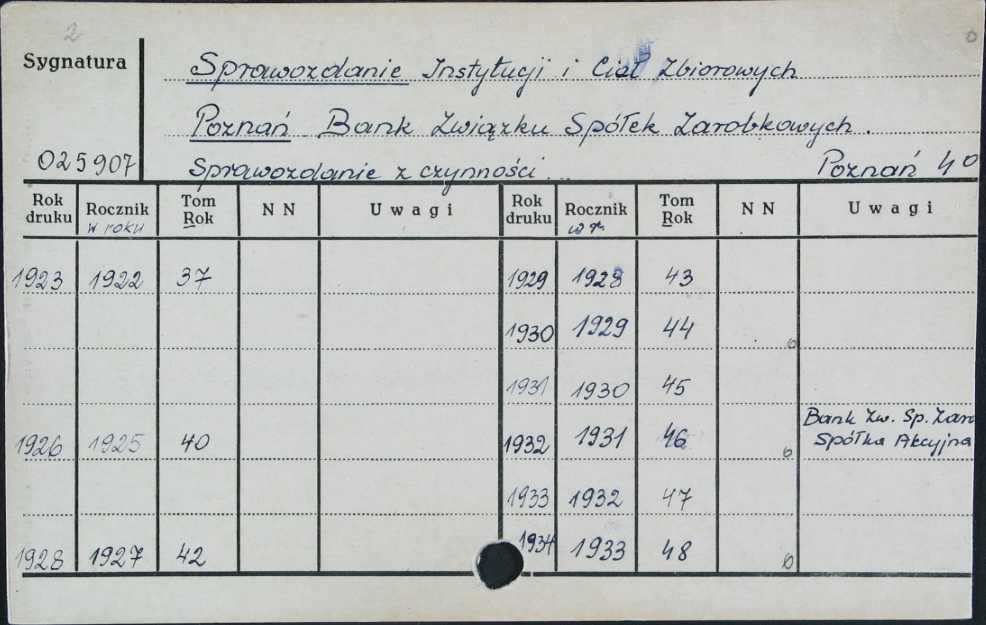 2
Sygnatura
Sprawozdanie Instytucji i Ciał Zbiorowych
Poznań Bank Związku Spółek Zarobkowych.
025907
Sprawozdanie z czynności... Poznań 40
Rok druku Rocznik w roku Tom Rok NN Uwagi Rok druku Rocznik w r. Tom Rok NN Uwagi
1923 1922 37 1929 1928 43
1930 1929 44
1931 1930 45
1926 1925 40 1932 1931 46 Bank Zw. Sp. Zaro
Spółka Akcyjna
1933 1932 47
1928 1927 42 1934 1933 48